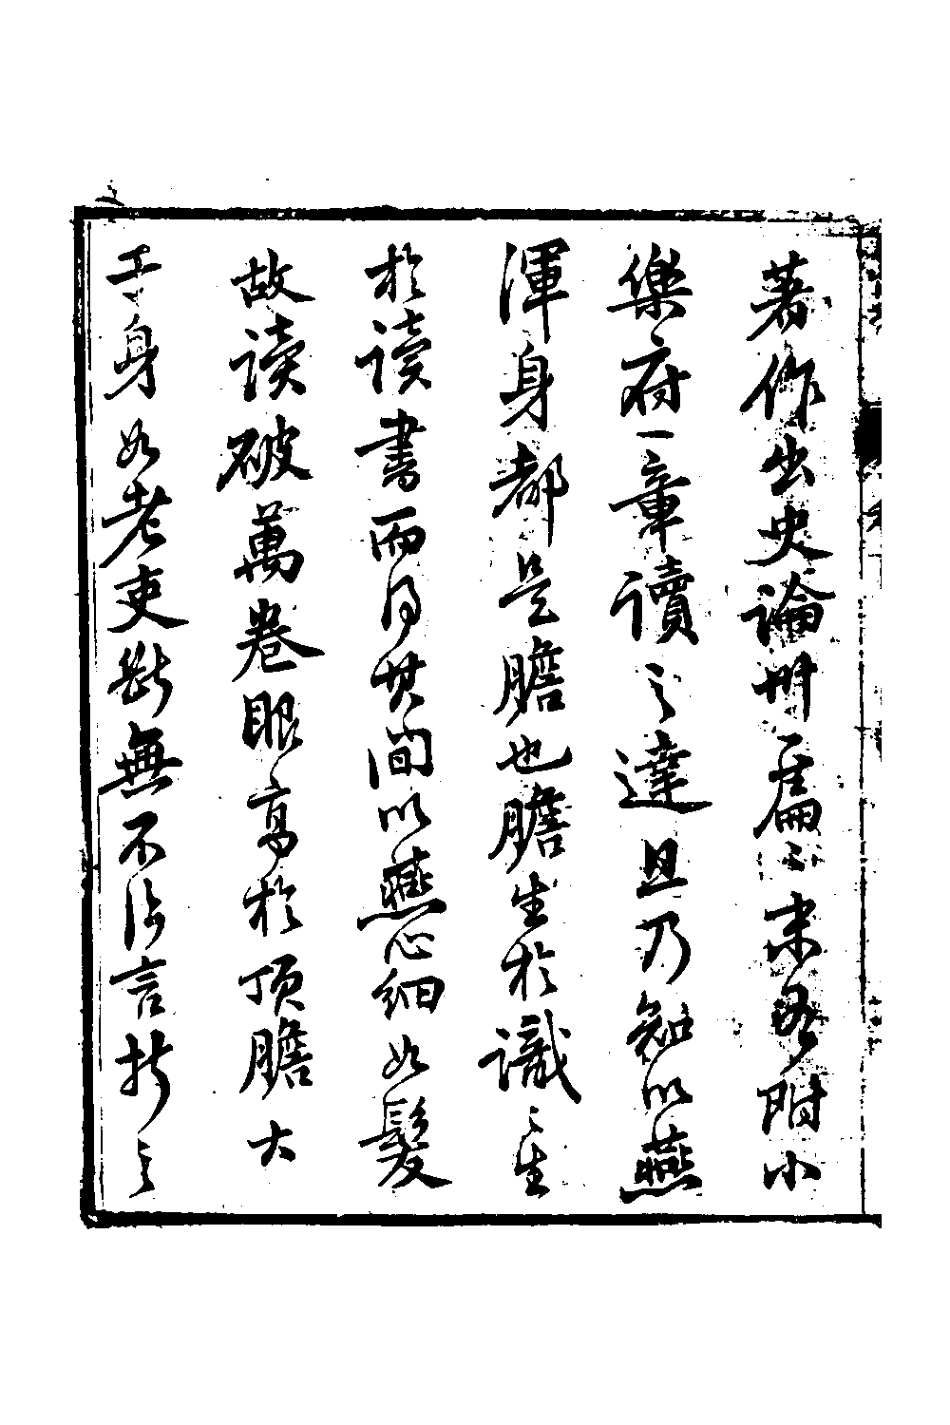 著作出史論卅篇〻末另附小
樂府一章讀之達旦乃知以燕
渾身都是膽也膽生於識〻生
於读書而得其间以燕心細如髮
故读破萬卷眼高於頂膽大
于身如老吏断無不沾言折之